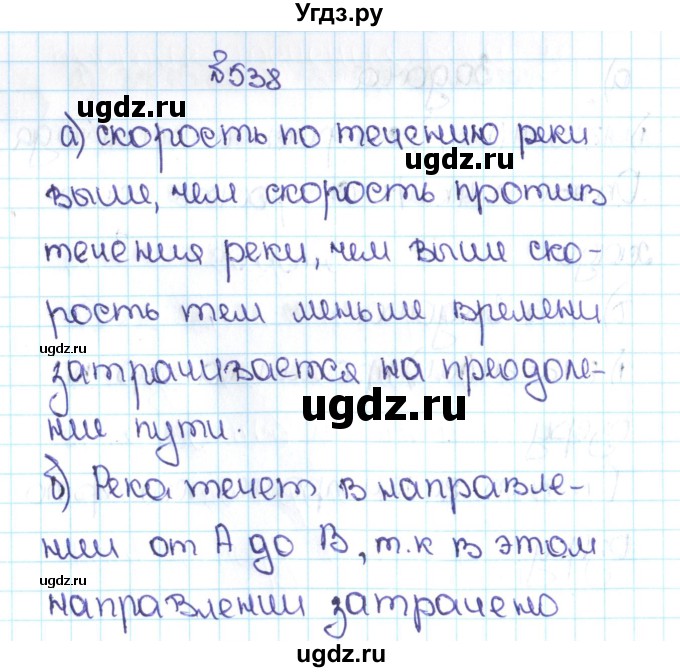 Угдз.ру
№538
ugdz.ru
а) скорость по течению реки
ugdz.ru
выше, чем скорость против
течения реки, чем выше ско-
рость тем меньше времени
ugdz.ru
затрачивается на преодоле-
ugdz.ru
ние пути.
б) Река течет в направле-
нии от А до В, т.к в этом
ugdz.ru
направлении затрачено
ugdz.ru